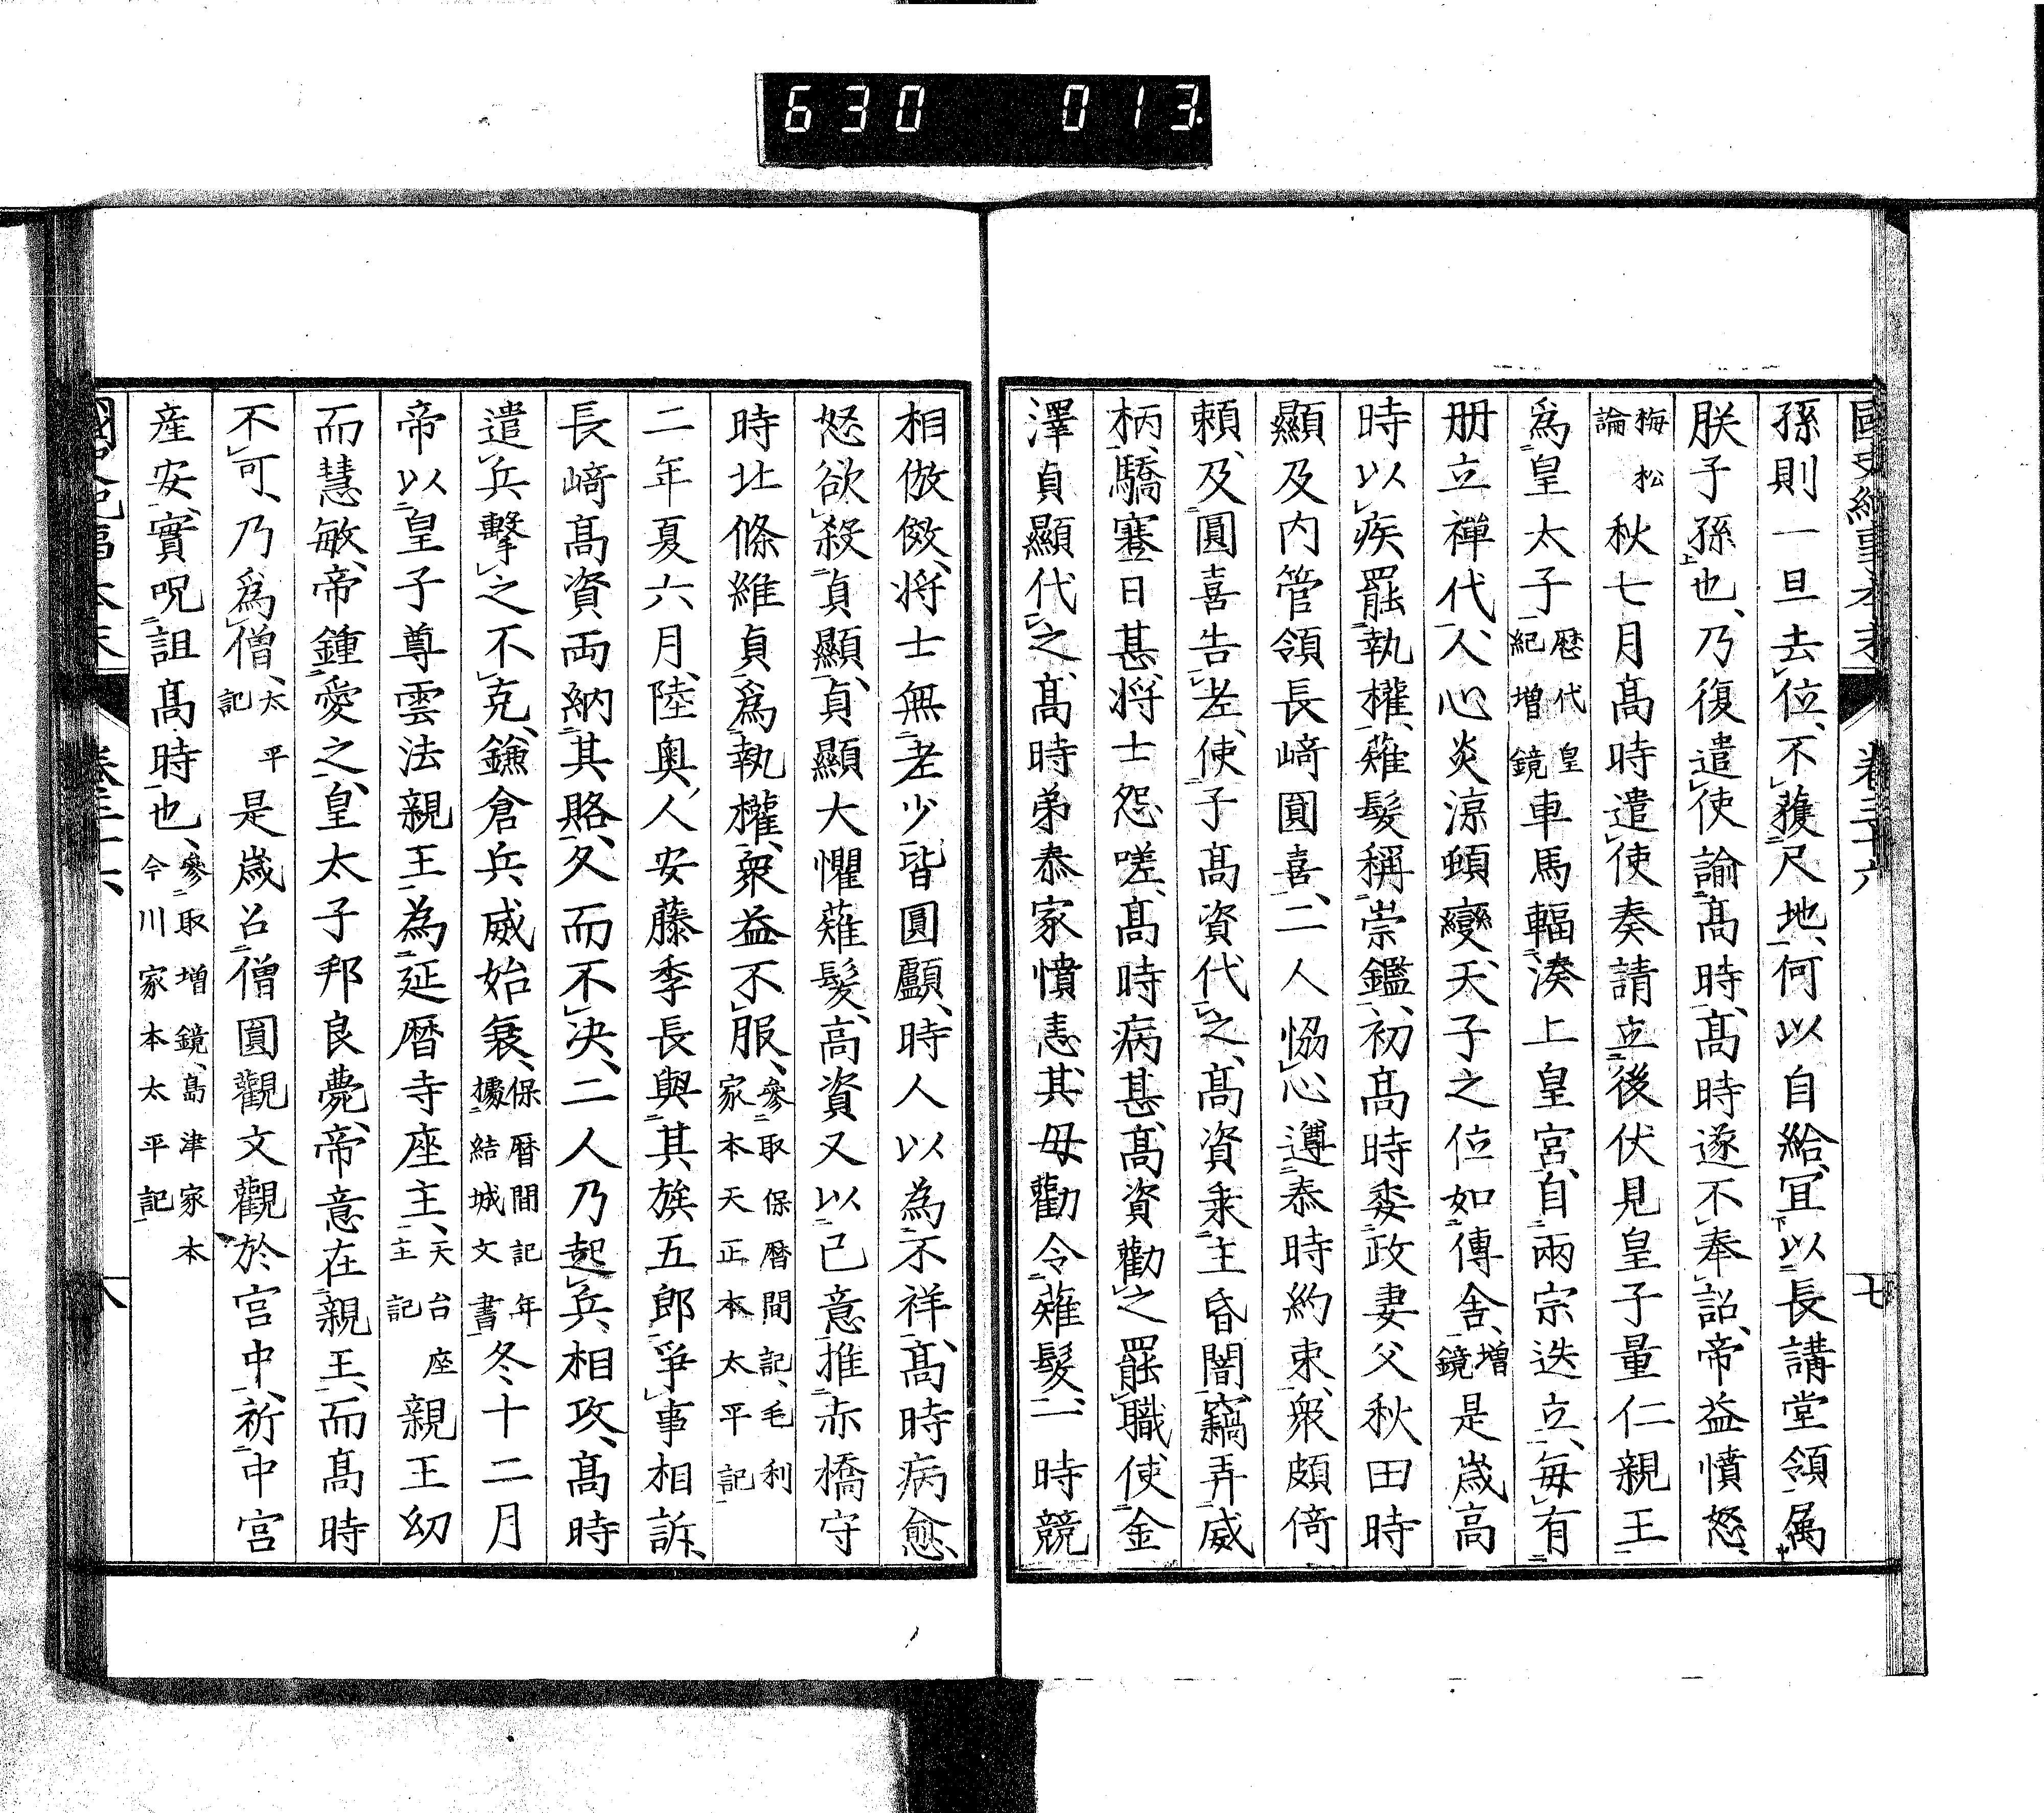 630 013
國史紀事本末 卷三十六 七
孫則一旦去位、不獲尺地、何以自給、冝以長講堂領屬
朕子孫也、乃復遣使諭高時、高時遂不奉詔、帝益憤怒、
梅松論秋七月高時遣使奏請立後伏見皇子量仁親王
爲皇太子歴代皇紀增鏡車馬輻湊上皇宮、自兩宗迭立、每有
册立禪代、人心炎涼頓變、天子之位如傳舍、增鏡是歲高
時以疾罷執權、薙髮稱崇鑑、初高時委政妻父秋田時
顯及内管領長﨑圓喜、二人恊心遵泰時約束、衆頗倚
頼、及圓喜告老、使子高資代之、高資乘主昏闇、竊弄威
柄、驕蹇日甚、將士怨嗟、高時病甚、高資勸之罷職、使金
澤貞顯代之、高時弟泰家憤恚、其母勸令薙髮、一時競
相倣傚、將士無老少、皆圓顱、時人以為不祥、高時病愈、
怒欲殺貞顯、貞顯大懼薙髮、高資又以己意推赤橋守
時北條維貞爲執權、衆益不服、參取保曆間記、毛利家本天正本太平記
二年夏六月、陸奥人安藤季長與其族五郎爭事相訴、
長﨑高資両納其賂、久而不决、二人乃起兵相攻、高時
遣兵擊之不克、鎌倉兵威始衰、保曆間記年據結城文書冬十二月
帝以皇子尊雲法親王為延曆寺座主、天台座主記親王幼
而慧敏、帝鍾愛之、皇太子邦良薨、帝意在親王、而高時
不可、乃爲僧、太平記是歲召僧圓觀文觀於宮中、祈中宮
産安、實呪詛高時也、參取增鏡、島津家本今川家本太平記